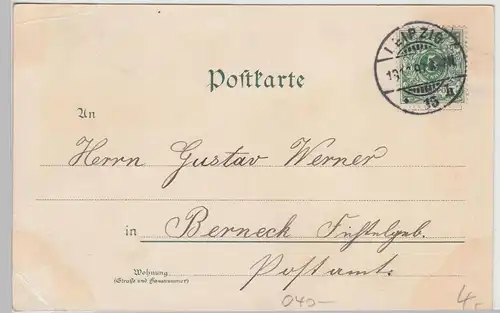 LEIPZIG
Postkarte
An
Herrn Gustav Werner
in Berneck Fichtelgeb.
Wohnung
(Straße und Hausnummer)
Postamt.
040-
4,-